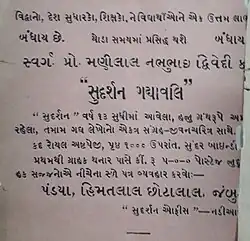 વિદ્વાનો, દેશ સુધારકો, શિક્ષકો, ને વિદ્યાર્થીઓને એક ઉત્તમ લાવ
બંધાય છે. થોડા સમયમાં પ્રસિદ્ધ થશે બંધાય
સ્વર્ગ. પ્રો. મણીલાલ નભુભાઇ દ્વિવેદી
"સુદર્શન ગદ્યાવલિ"
"સુદર્શન" વર્ષ ૧૩ સુધીમાં આવેલા, હજુ ગ્રંથરૂપે અપ્ર
રહેલા, તમામ ગદ્ય લેખોનો એકત્ર સંગ્રહ-જીવનચરિત્ર સાથે.
કદ રોયલ અષ્ટપેજી, પૃષ્ઠ ૧૦૦૦ ઉપરાંત, સુંદર બાઇન્ડી
પ્રથમથી ગ્રાહક થનાર પાસે કીં. રૂ ૫-૦-૦ પોસ્ટેજ જુદું
હક સજ્જનોએ નીચેના સ્થળે પત્ર વ્યવહાર કરવો:—
પંડ્યા, હિમતલાલ છોટાલાલ, જંબુ
"સુદર્શન ઓફીસ" —નડીઆ